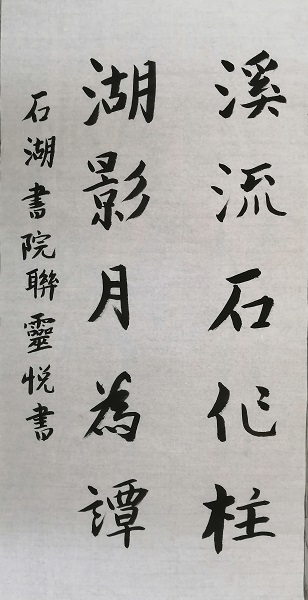 溪流石作柱
湖影月為譚
石湖書院聯靈悦書